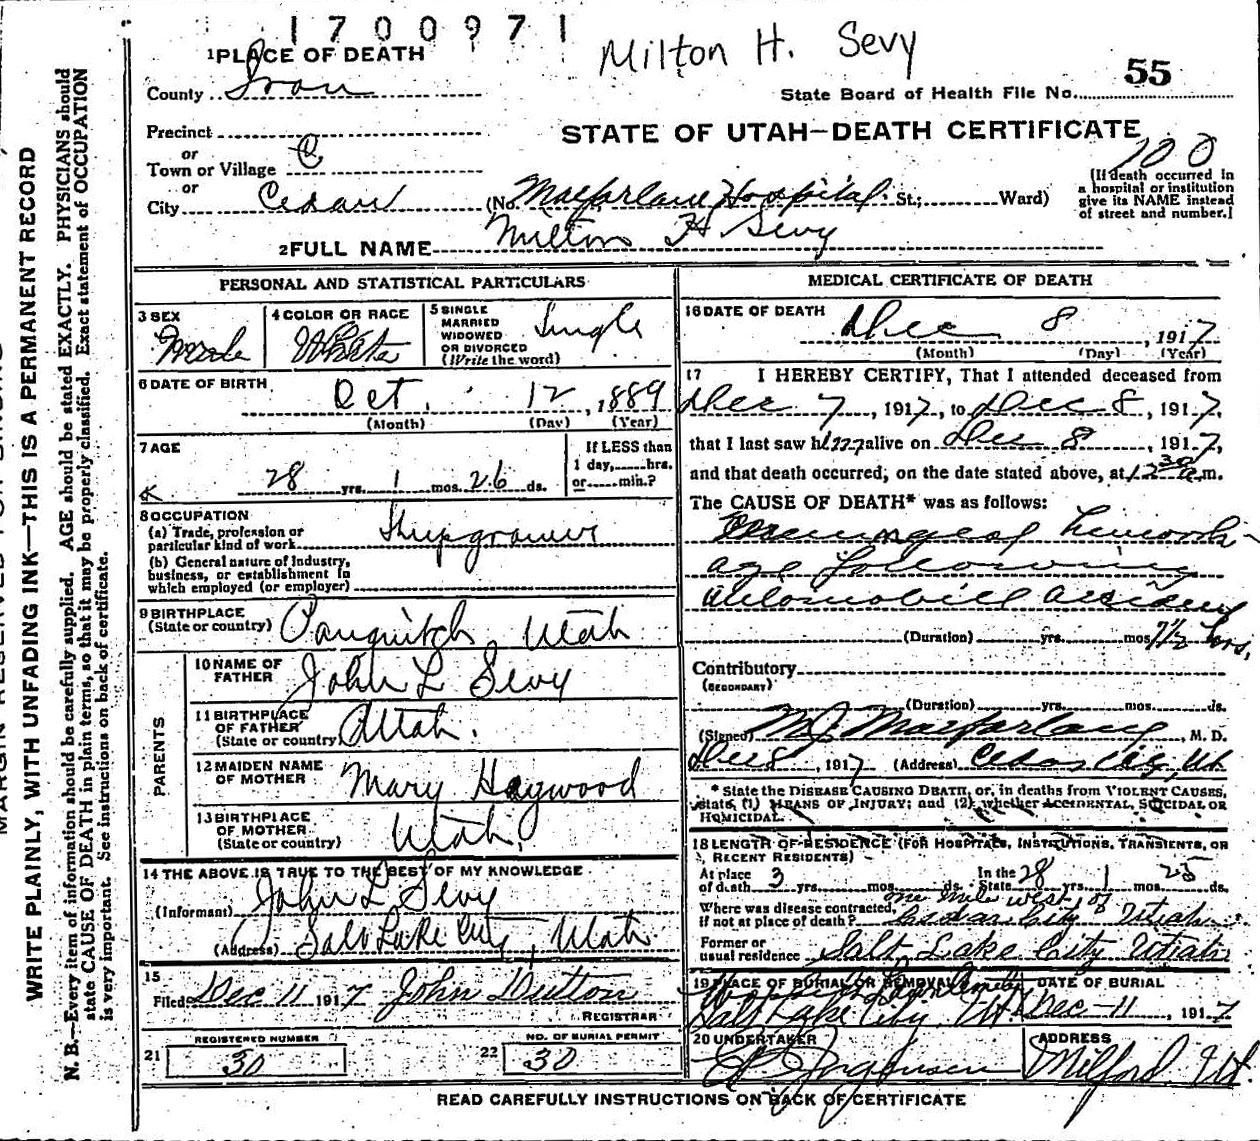 1700971
Milton H. Sevy
1 PLACE OF DEATH
55
County Iron
State Board of Health File No.
Precinct
STATE OF UTAH—DEATH CERTIFICATE
or
Town or Village C
100
or
City Cedar (No. Macfarlane Hospital St.; Ward)
(If death occurred in
a hospital or institution
give its NAME instead
of street and number.)
2 FULL NAME Milton H Sevy
PERSONAL AND STATISTICAL PARTICULARS
3 SEX
Male
4 COLOR OR RACE
White
5 SINGLE
MARRIED
WIDOWED
OR DIVORCED
(Write the word)
Single
6 DATE OF BIRTH
Oct. 12, 1889
(Month) (Day) (Year)
7 AGE
28 yrs. 1 mos. 26 ds.
If LESS than
1 day, hrs.
or min.?
8 OCCUPATION
(a) Trade, profession or
particular kind of work
(b) General nature of industry,
business, or establishment in
which employed (or employer)
9 BIRTHPLACE
(State or country) Panguitch Utah
PARENTS
10 NAME OF
FATHER John L Sevy
11 BIRTHPLACE
OF FATHER
(State or country) Utah.
12 MAIDEN NAME
OF MOTHER Mary Haywood
13 BIRTHPLACE
OF MOTHER
(State or country) Utah.
14 THE ABOVE IS TRUE TO THE BEST OF MY KNOWLEDGE
(Informant) John L Sevy
(Address) Salt Lake City, Utah
15
Filed Dec 11 1917 John Dutton
REGISTRAR
21 REGISTERED NUMBER
30
22 NO. OF BURIAL PERMIT
30
MEDICAL CERTIFICATE OF DEATH
16 DATE OF DEATH
Dec 8, 1917
(Month) (Day) (Year)
17 I HEREBY CERTIFY, That I attended deceased from
Dec 7, 1917, to Dec 8, 1917,
that I last saw him alive on Dec 8, 1917,
and that death occurred, on the date stated above, at 12 30 a.m.
The CAUSE OF DEATH* was as follows:
Meningeal hemorrh-
age following
automobile accident
(Duration) yrs. mos. 7½ hrs.
Contributory
(SECONDARY)
(Duration) yrs. mos. ds.
(Signed) M J Macfarlane, M. D.
Dec 8, 1917 (Address) Cedar City, Ut
* State the DISEASE CAUSING DEATH, or, in deaths from VIOLENT CAUSES,
state (1) MEANS OF INJURY; and (2) whether ACCIDENTAL, SUICIDAL OR
HOMICIDAL.
18 LENGTH OF RESIDENCE (FOR HOSPITALS, INSTITUTIONS, TRANSIENTS, OR
RECENT RESIDENTS)
At place
of death 3 yrs. mos. ds.
In the
State 28 yrs. 1 mos. 25 ds.
Where was disease contracted,
if not at place of death?
one mile west of
Cedar City Utah
Former or
usual residence Salt Lake City Utah
19 PLACE OF BURIAL OR REMOVAL
Salt Lake City, Ut.
DATE OF BURIAL
Dec-11, 1917
20 UNDERTAKER
Jorgensen
ADDRESS
Milford Ut.
READ CAREFULLY INSTRUCTIONS ON BACK OF CERTIFICATE
WRITE PLAINLY, WITH UNFADING INK—THIS IS A PERMANENT RECORD
N. B.—Every item of information should be carefully supplied. AGE should be stated EXACTLY. PHYSICIANS should
state CAUSE OF DEATH in plain terms, so that it may be properly classified. Exact statement of OCCUPATION
is very important. See instructions on back of certificate.